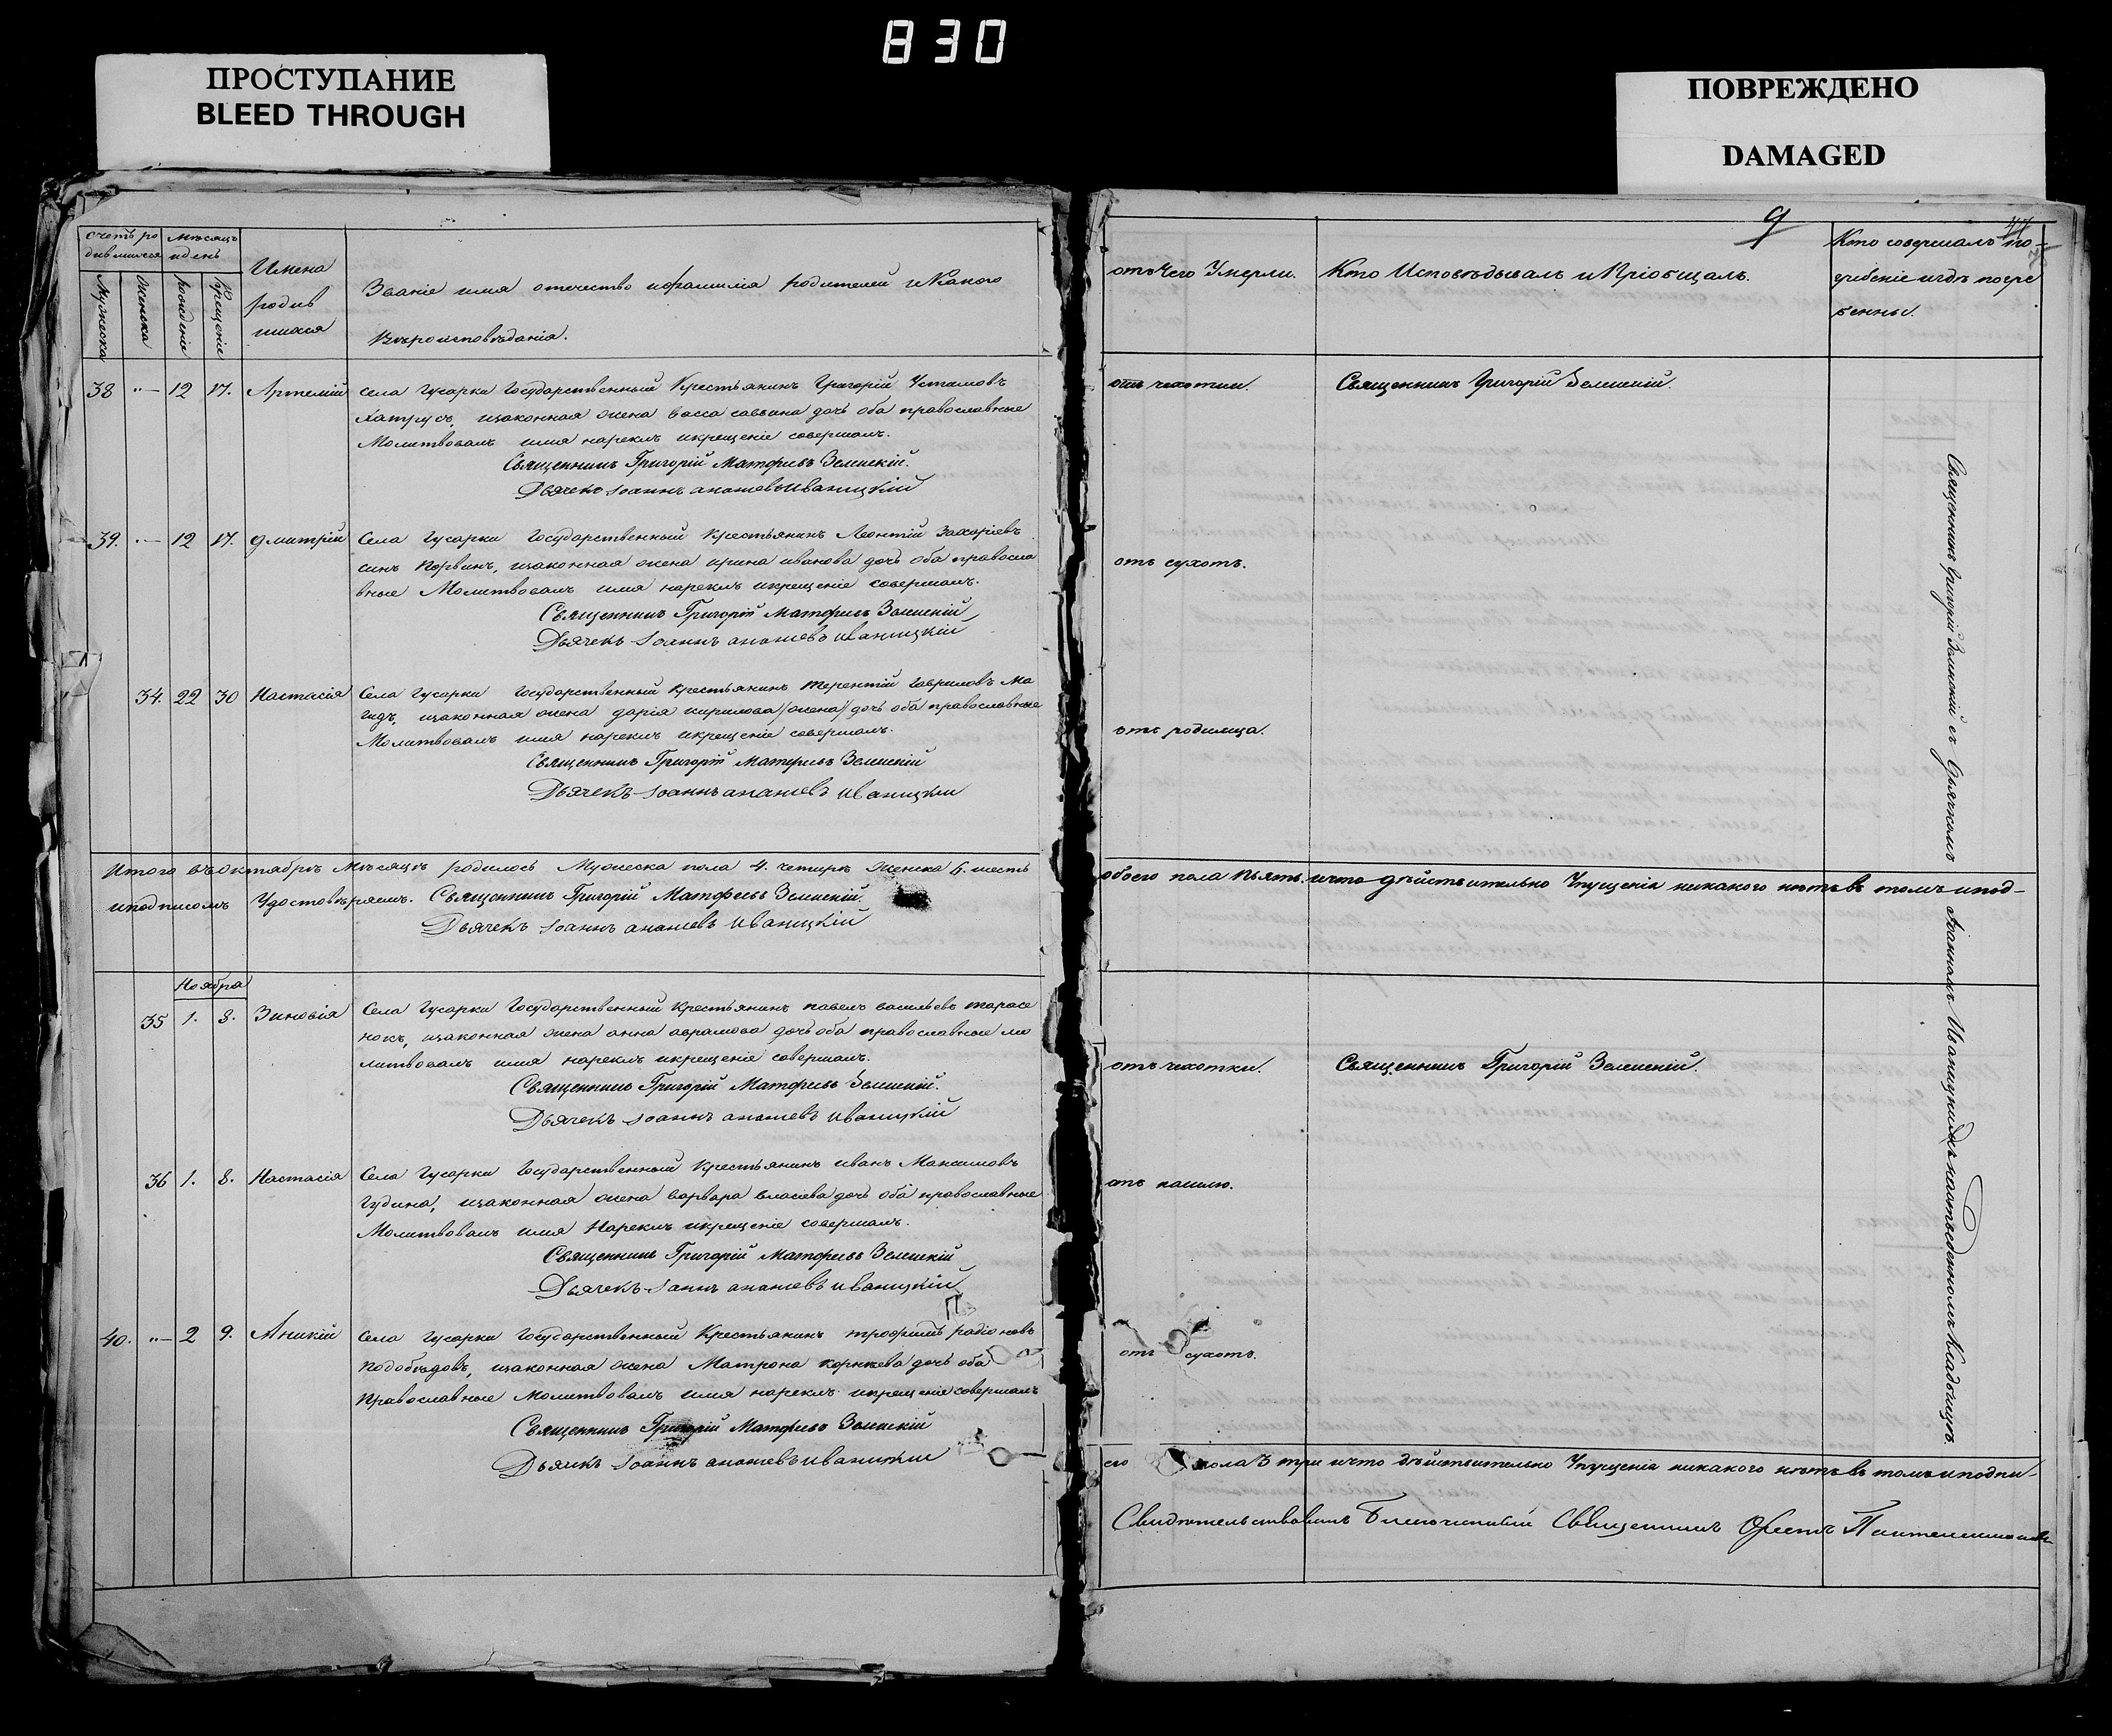 830
ПРОСТУПАНИЕ
BLEED THROUGH
ПОВРЕЖДЕНО
DAMAGED
счетъ ро
дившихся
мѣсяцъ
и день
Мужеска
Женска
рожденіе
Крещеніе
Имена
родив
шихся
Званіе имя отечество и фамилія родителей и Какого
Вѣроисповѣданія.
38 "— 12 17. Артемій
села Гусарки Государственный Крестьянинъ Григорій Устимовъ
изаконная жена васса саввина дочь оба православные
Молитвовалъ имя нарекъ икрещеніе совершалъ.
Священникъ Григорій Матфѣевъ Зеленскій.
Дьячекъ Іоаннъ ананіевъ Иваницкій
39. "— 12 17. Дмитрій
Села Гусарки Государственный Крестьянинъ Леонтій Захаріевъ
сынъ изаконная жена ирина иванова дочь оба правосла
вные Молитвовалъ имя нарекъ икрещеніе совершалъ.
Священникъ Григорій Матфѣевъ Зеленскій
Дьячекъ Іоаннъ ананіевъ Иваницкій
34. 22 30 Настасія
Села Гусарки Государственный крестьянинъ терентій гавриловъ Ма
гидъ, изаконная жена дарія кирилова /жена/ дочь оба православные
Молитвовалъ имя нарекъ икрещеніе совершалъ.
Священникъ Григорій Матфѣевъ Зеленскій
Дьячекъ Іоаннъ ананіевъ Иваницкій
Итого въ Октябрѣ Мѣсяцѣ родилось Мужеска пола 4. четыре Женска 6. шесть
иподписомъ Удостовѣряемъ. Священникъ Григорій Матфѣевъ Зеленскій.
Дьячекъ Іоаннъ ананіевъ Иваницкій
Ноября
35 1. 8. Зиновія
Села Гусарки Государственный Крестьянинъ павелъ васильевъ тарасе
нокъ, изаконная жена анна аврамова дочь оба православные мо
литвовалъ имя нарекъ икрещеніе совершалъ.
Священникъ Григорій Матфѣевъ Зеленскій.
Дьячекъ Іоаннъ ананіевъ Иваницкій
36 1. 8. Настасія
Села Гусарки Государственный Крестьянинъ иванъ Максимовъ
Гудина, изаконная жена варвара власіева дочь оба православные
Молитвовалъ имя Нарекъ икрещеніе совершалъ.
Священникъ Григорій Матфѣевъ Зеленскій
Дьячекъ Іоаннъ ананіевъ Иваницкій
40. "— 2 9. Аникій
Села Гусарки Государственный Крестьянинъ трофимъ радіоновъ
Подобѣдовъ, изаконная жена Матрона корнѣева дочь оба
Православные Молитвовалъ имя нарекъ икрещеніе совершалъ
Священникъ Григорій Матфѣевъ Зеленскій
Дьячекъ Іоаннъ ананіевъ Иваницкій
9
отъ Чего Умерли.
Кто Исповѣдывалъ и Пріобщалъ.
Кто совершалъ по-
гребеніе игдѣ погре
бенны.
отъ чахотки.
Священникъ Григорій Зеленскій.
отъ сухотъ.
отъ родимца.
обоего пола пьять. ичто дѣйствительно Упущенія никакого нѣтъ въ томъ ипод-
отъ чахотки.
Священникъ Григорій Зеленскій.
отъ кашлю.
отъ сухотъ.
его пола 3 три ичто дѣйствительно Упущенія никакого нѣтъ въ томъ иподпи-
Свидѣтельствовалъ Благочинный Священникъ
Священникъ Григорій Зеленскій съ Дьячкомъ Иваницкимъ кладбищѣ.